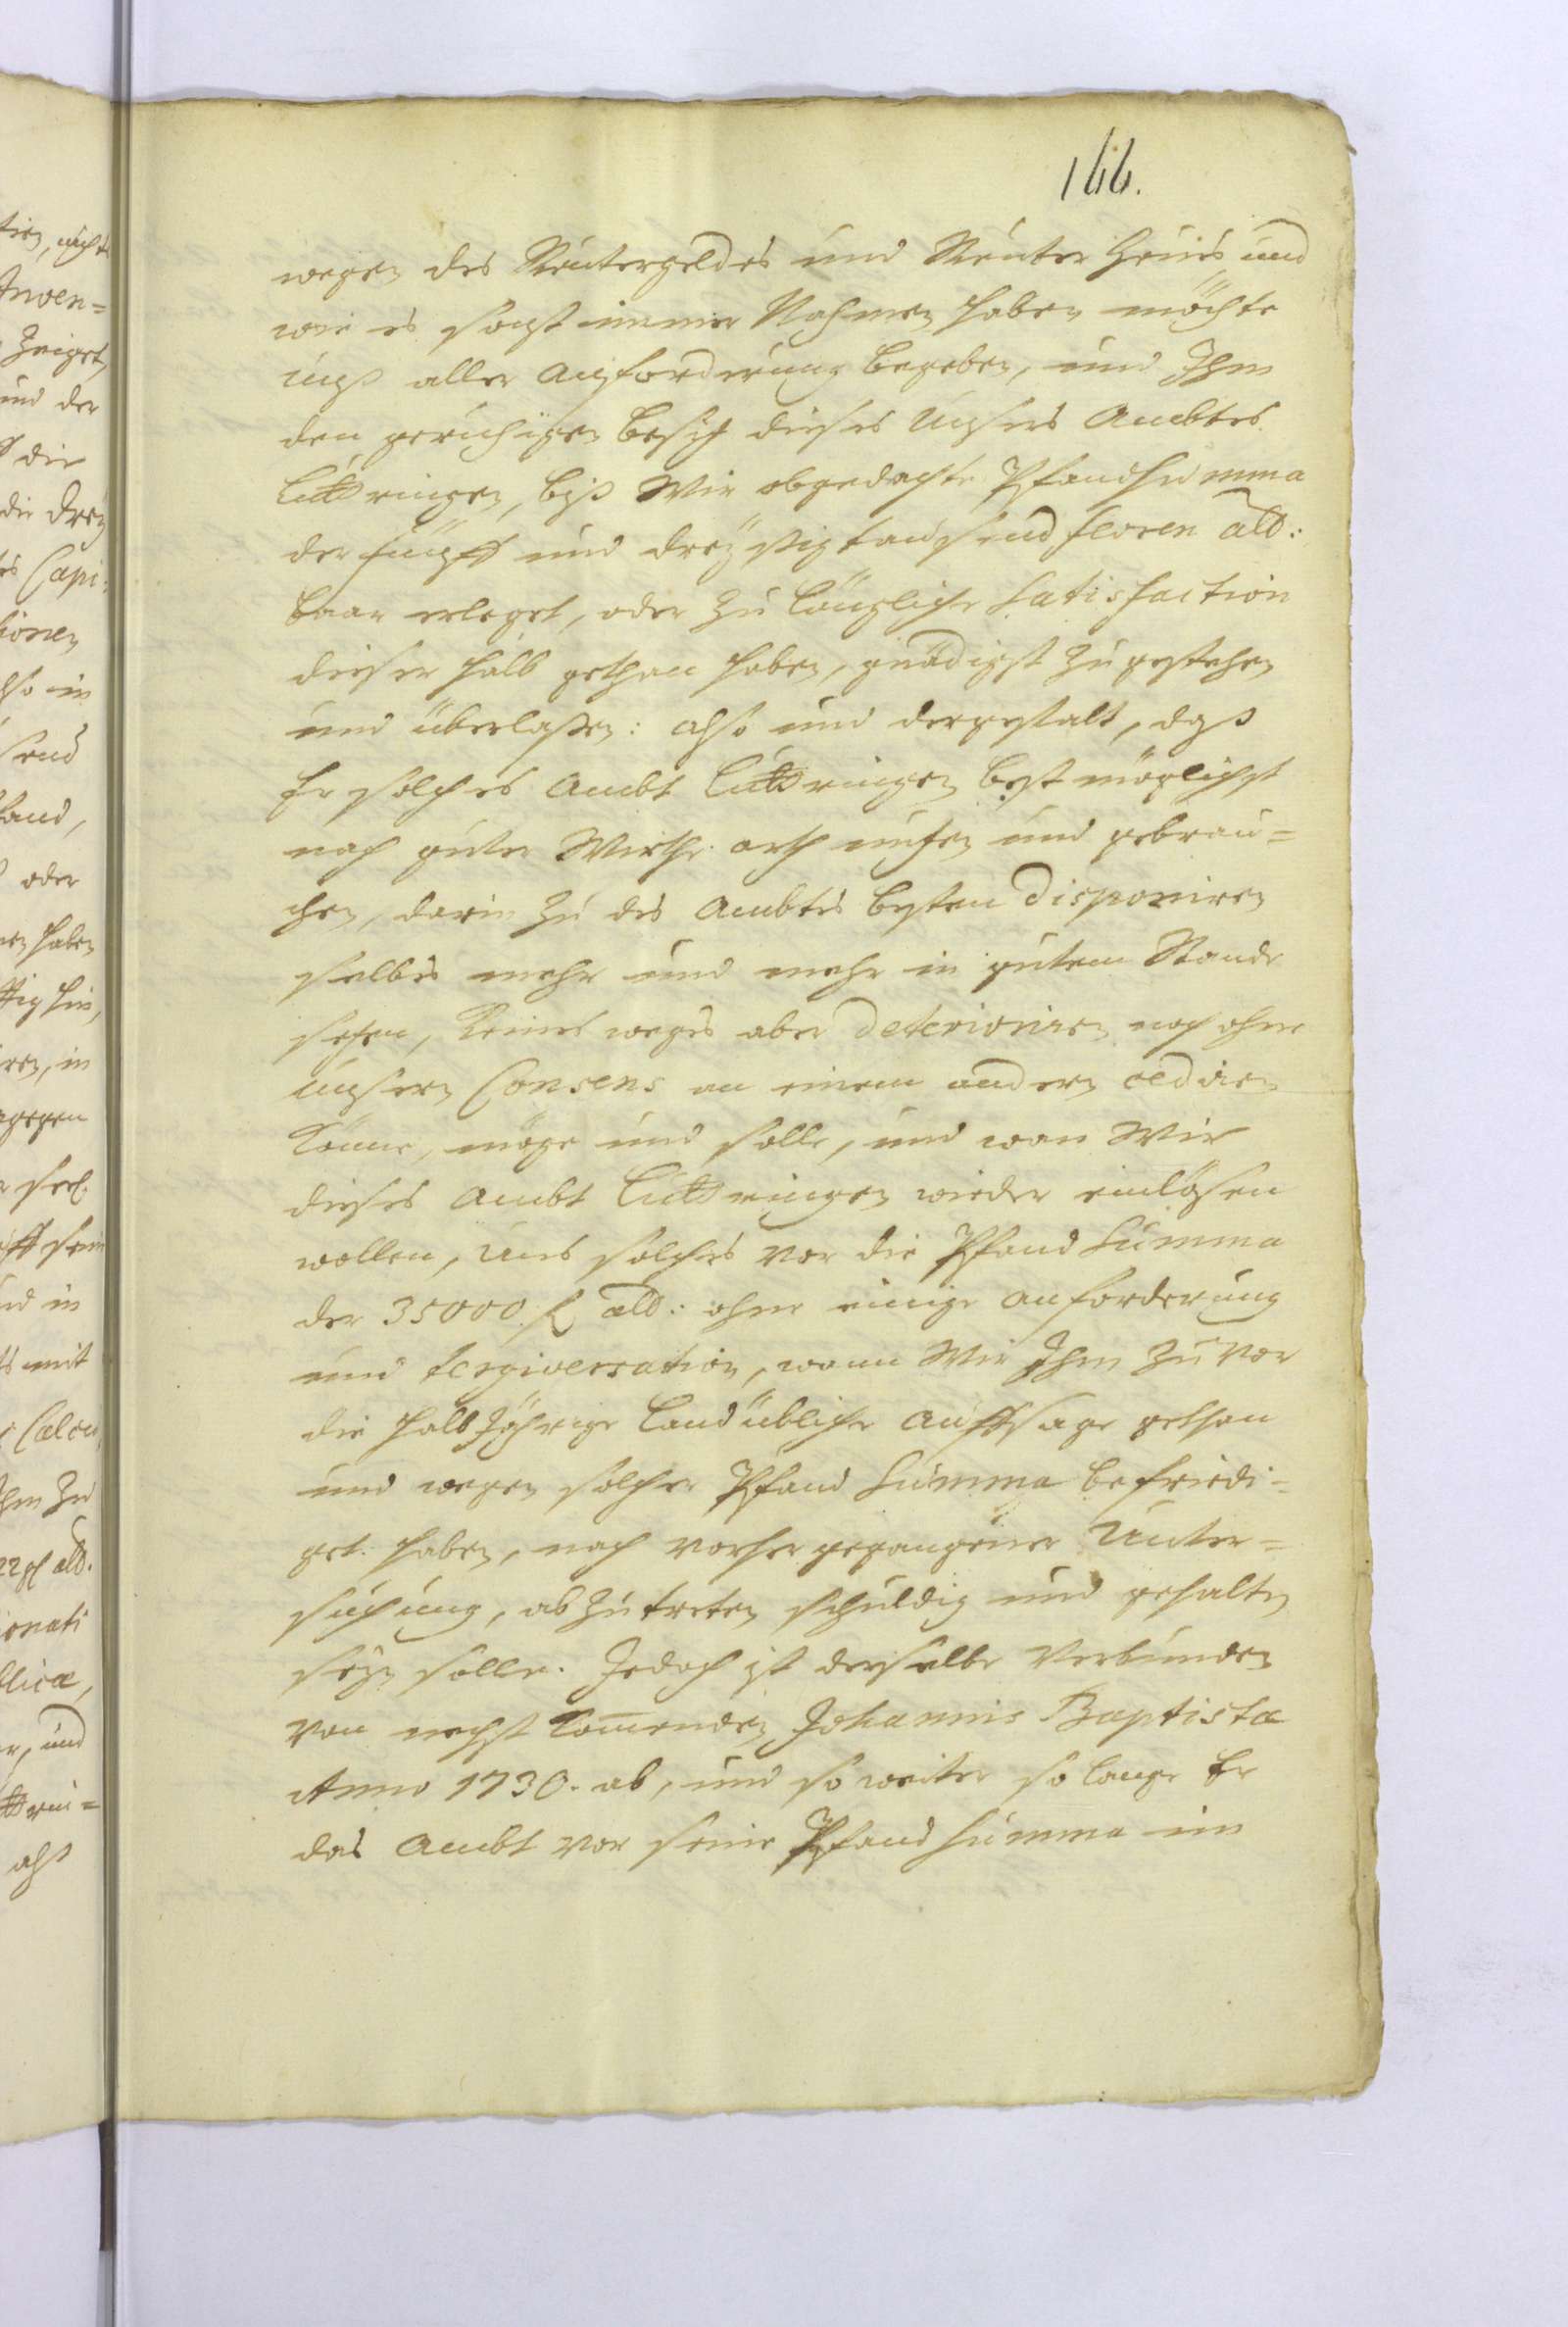 166.
wegen des Reutergeldes und Reuter Heues und
wie es sonst immer Nahmen haben möchte
unß aller Anforderung begeben, und Ihm
den geruhigen Besitz dieses Unsers Ambtes
Luttringen, biß Wir obgedachte Pfandsumma
der fünff und dreÿßig tausend floren alb:
baar erleget, oder zu längliche Satisfaction
dieser halb gethan haben, gnädigst zugestehen
und überlaßen: also und dergestalt, daß
Er solches Ambt Luttringen best möglichst
nach guter Wirths arth nutzen und gebrau=
chen, darin zu des Ambtes besten disponiren
selbes mehr und mehr in gutem Stande
setzen, Keines weges aber deterioriren noch ohne
unsern Consens an einem andern cediren
könne, möge und solle, und wan Wir
dieses Ambt Luttringen wieder einlösen
wollen, Uns solches vor die Pfand Summa
der 35000. fl alb: ohne einige anforderung
und tergiversation, wann Wir Ihm zuvor
die halbjährige landübliche Auffsage gethan
und wegen solcher Pfand Summa befriedi=
get haben, nach vorhergegangener Unter=
suchung, abzutreten schuldig und gehalten
seÿn solle. Jedoch ist derselbe Verbunden
von nechst kom̅enden Johannis Baptistæ
Anno 1730. ab, und so weiter so lange Er
das Ambt vor seine Pfand Summa im
tien, nicht
Inven=
Zeiget,
und der
die
die dreÿ
es Capi:
also in
send
oder
en haben
ren, in
ff sein
und in
es mit
Calcu
Ihm zu
fl alb.
onati
blicæ,
er, und
ttrin=
alß